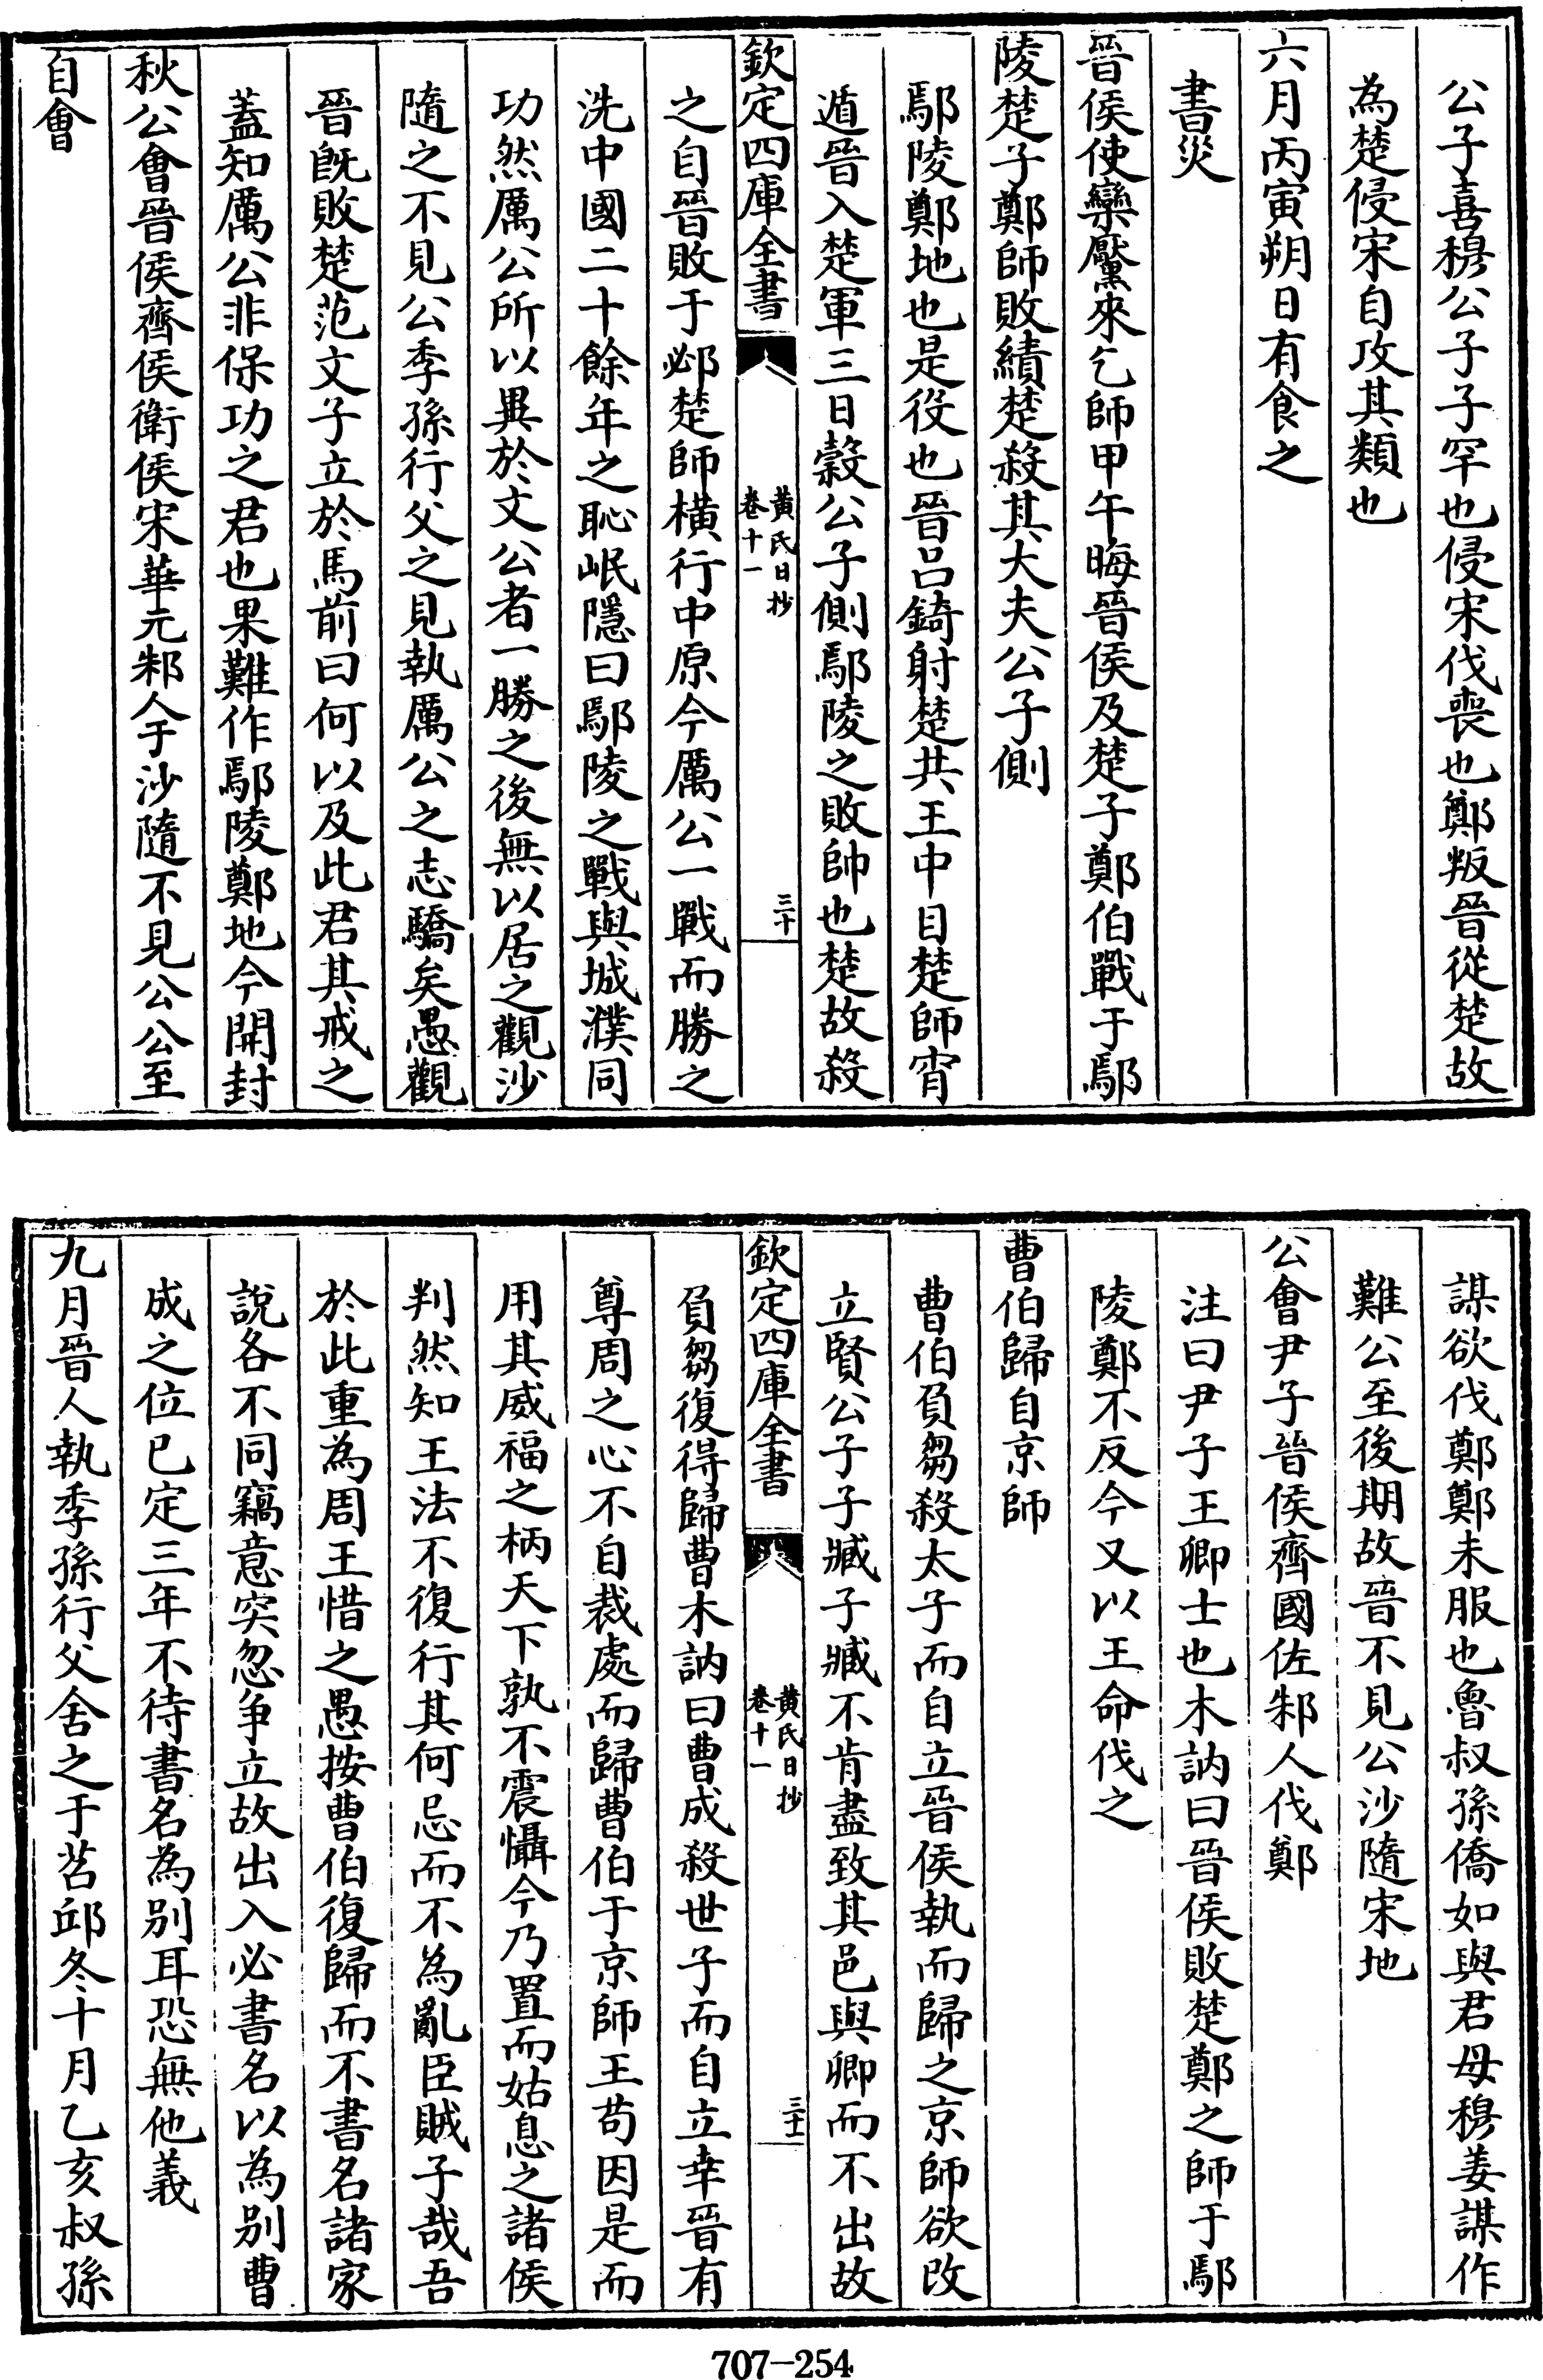 公子喜穆公子子罕也侵宋伐喪也鄭叛晉從楚故
為楚侵宋自攻其類也
六月丙寅朔日有食之
書災
晉侯使欒黶來乞師甲午晦晉侯及楚子鄭伯戰于鄢
陵楚子鄭師敗績楚殺其大夫公子側
鄢陵鄭地也是役也晉呂錡射楚共王中目楚師宵
遁晉入楚軍三日穀公子側鄢陵之敗帥也楚故殺
欽定四庫全書
黃氏日抄
卷十一
三十
之自晉敗于邲楚師橫行中原今厲公一戰而勝之
洗中國二十餘年之恥岷隱曰鄢陵之戰與城濮同
功然厲公所以異於文公者一勝之後無以居之觀沙
隨之不見公季孫行父之見執厲公之志驕矣愚觀
晉旣敗楚范文子立於馬前曰何以及此君其戒之
蓋知厲公非保功之君也果難作鄢陵鄭地今開封
秋公會晉侯齊侯衛侯宋華元邾人于沙隨不見公公至
自會
謀欲伐鄭鄭未服也魯叔孫僑如與君母穆姜謀作
難公至後期故晉不見公沙隨宋地
公會尹子晉侯齊國佐邾人伐鄭
注曰尹子王卿士也木訥曰晉侯敗楚鄭之師于鄢
陵鄭不反今又以王命伐之
曹伯歸自京師
曹伯負芻殺太子而自立晉侯執而歸之京師欲改
立賢公子子臧子臧不肯盡致其邑與卿而不出故
欽定四庫全書
黃氏日抄
卷十一
三十一
負芻復得歸曹木訥曰曹成殺世子而自立幸晉有
尊周之心不自裁處而歸曹伯于京師王苟因是而
用其威福之柄天下孰不震懾今乃置而姑息之諸侯
判然知王法不復行其何忌而不為亂臣賊子哉吾
於此重為周王惜之愚按曹伯復歸而不書名諸家
說各不同竊意突忽爭立故出入必書名以為別曹
成之位已定三年不待書名為別耳恐無他義
九月晉人執季孫行父舍之于苕邱冬十月乙亥叔孫
707-254